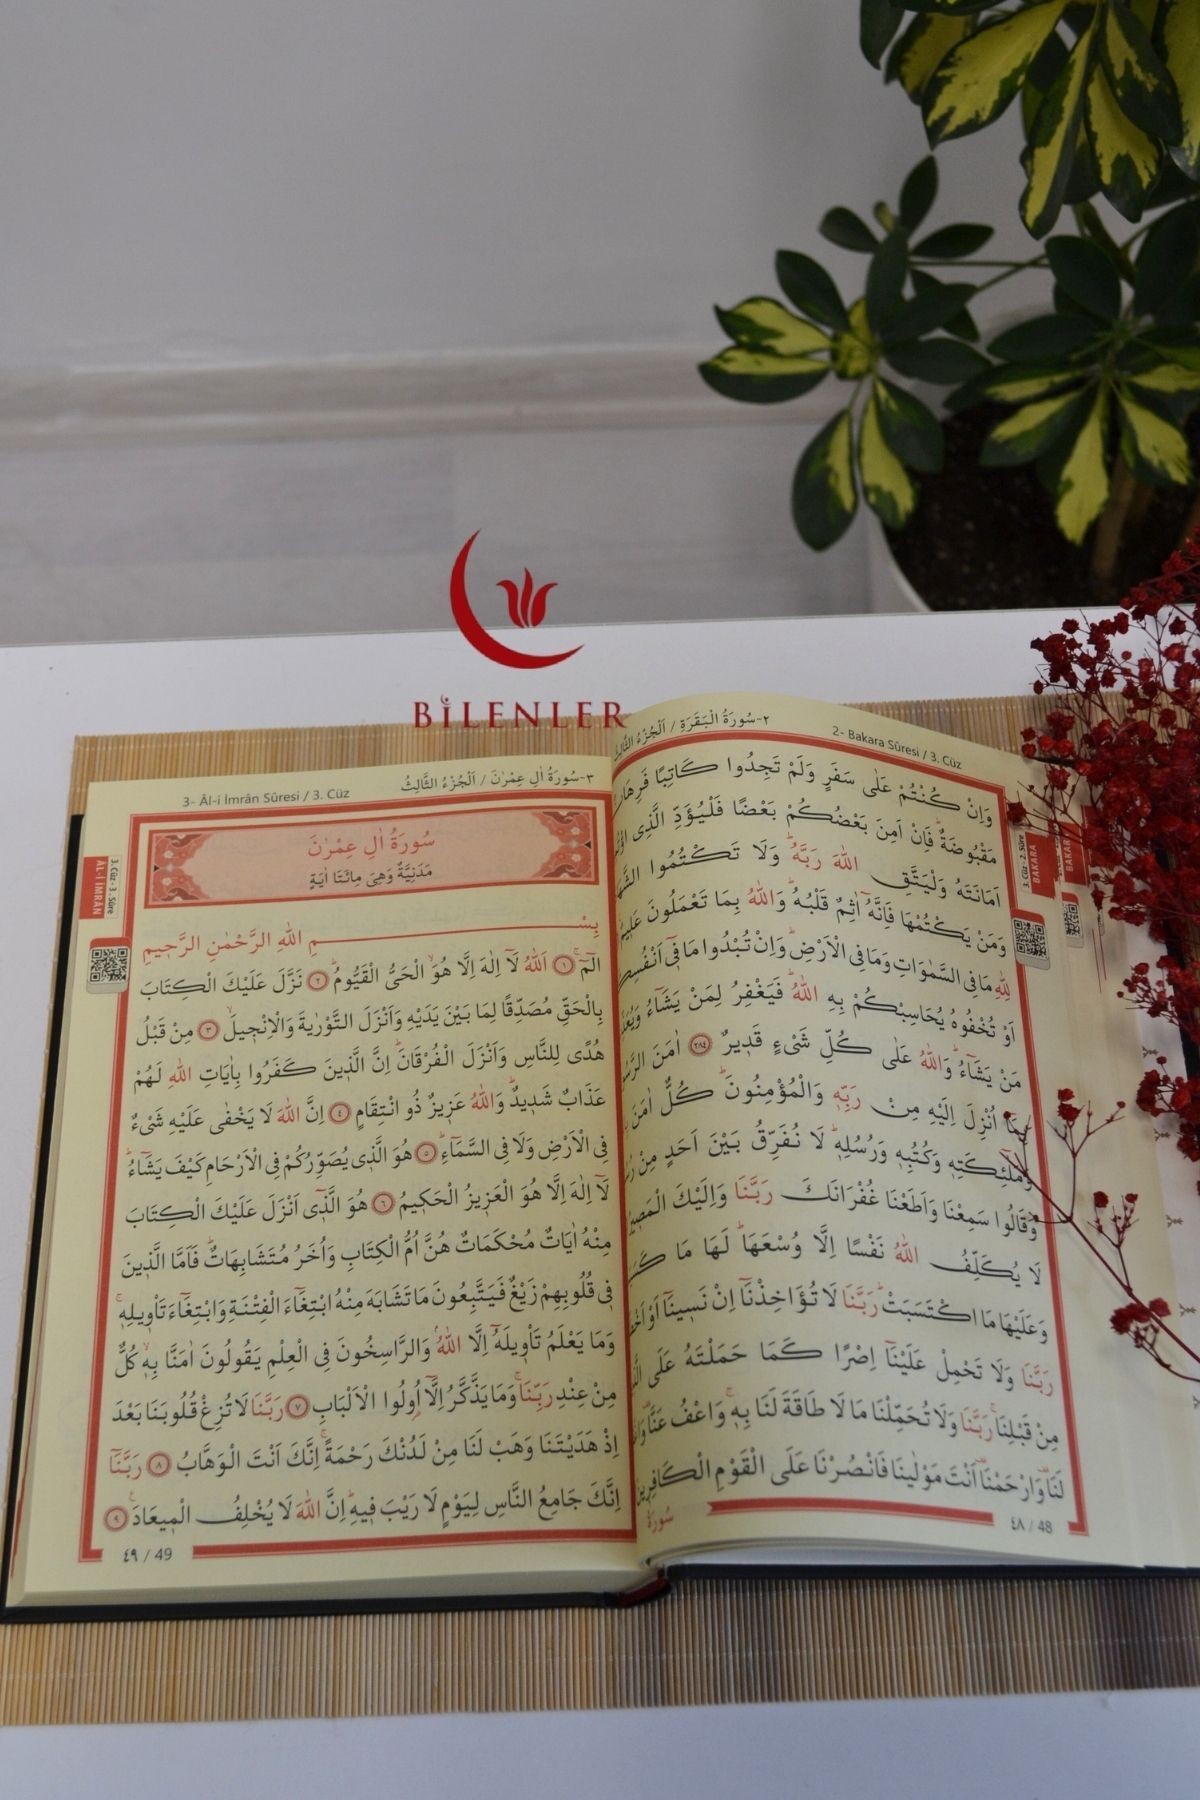 BİLENLER
٢-سُورَةُ الْبَقَرَةِ / اَلْجُزْءُ الثَّالِثُ
2- Bakara Sûresi / 3. Cüz
وَاِنْ كُنْتُمْ عَلٰى سَفَرٍ وَلَمْ تَجِدُوا كَاتِبًا فَرِهَانٌ
مَقْبُوضَةٌۜ فَاِنْ اَمِنَ بَعْضُكُمْ بَعْضًا فَلْيُؤَدِّ الَّذِى
اَمَانَتَهُ وَلْيَتَّقِ اللّٰهَ رَبَّهُۜ وَلَا تَكْتُمُوا
وَمَنْ يَكْتُمْهَا فَاِنَّهُٓ اٰثِمٌ قَلْبُهُۜ وَاللّٰهُ بِمَا تَعْمَلُونَ
لِلّٰهِ مَا فِى السَّمٰوَاتِ وَمَا فِى الْاَرْضِۜ وَاِنْ تُبْدُوا مَا فٖٓى اَنْفُسِكُمْ
اَوْ تُخْفُوهُ يُحَاسِبْكُمْ بِهِ اللّٰهُۜ فَيَغْفِرُ لِمَنْ يَشَٓاءُ
مَنْ يَشَٓاءُۜ وَاللّٰهُ عَلٰى كُلِّ شَىْءٍ قَدٖيرٌ ٢٨٤ اٰمَنَ
بِمَٓا اُنْزِلَ اِلَيْهِ مِنْ رَبِّهٖ وَالْمُؤْمِنُونَۜ كُلٌّ اٰمَنَ
وَمَلٰٓئِكَتِهٖ وَكُتُبِهٖ وَرُسُلِهٖۜ لَا نُفَرِّقُ بَيْنَ اَحَدٍ مِنْ
وَقَالُوا سَمِعْنَا وَاَطَعْنَا غُفْرَانَكَ رَبَّنَا وَاِلَيْكَ الْمَصٖيرُ
لَا يُكَلِّفُ اللّٰهُ نَفْسًا اِلَّا وُسْعَهَاۜ لَهَا مَا
وَعَلَيْهَا مَا اكْتَسَبَتْۜ رَبَّنَا لَا تُؤَاخِذْنَٓا اِنْ نَسٖينَٓا اَوْ
رَبَّنَا وَلَا تَحْمِلْ عَلَيْنَٓا اِصْرًا كَمَا حَمَلْتَهُ عَلَى
مِنْ قَبْلِنَاۚ رَبَّنَا وَلَا تُحَمِّلْنَا مَا لَا طَاقَةَ لَنَا بِهٖۚ وَاعْفُ عَنَّا
لَنَا۠ وَارْحَمْنَا۠ اَنْتَ مَوْلٰينَا فَانْصُرْنَا عَلَى الْقَوْمِ الْكَافِرٖينَ
سُورَةُ
٤٨ / 48
3. Cüz - 2. Sûre
BAKARA
3- Âl-i İmrân Sûresi / 3. Cüz
٣-سُورَةُ اٰلِ عِمْرٰنَ / اَلْجُزْءُ الثَّالِثُ
3. Cüz - 3. Sûre
ÂL-İ İMRÂN
سُورَةُ اٰلِ عِمْرٰنَ
مَدَنِيَّةٌ وَهِىَ مِائَتَا اٰيَةٍ
بِسْمِ اللّٰهِ الرَّحْمٰنِ الرَّحٖيمِ
الٓمٓۚ ١ اَللّٰهُ لَٓا اِلٰهَ اِلَّا هُوَۙ الْحَىُّ الْقَيُّومُ ٢ نَزَّلَ عَلَيْكَ الْكِتَابَ
بِالْحَقِّ مُصَدِّقًا لِمَا بَيْنَ يَدَيْهِ وَاَنْزَلَ التَّوْرٰيةَ وَالْاِنْجٖيلَۙ ٣ مِنْ قَبْلُ
هُدًى لِلنَّاسِ وَاَنْزَلَ الْفُرْقَانَۜ اِنَّ الَّذٖينَ كَفَرُوا بِاٰيَاتِ اللّٰهِ لَهُمْ
عَذَابٌ شَدٖيدٌۜ وَاللّٰهُ عَزٖيزٌ ذُو انْتِقَامٍ ٤ اِنَّ اللّٰهَ لَا يَخْفٰى عَلَيْهِ شَىْءٌ
فِى الْاَرْضِ وَلَا فِى السَّمَٓاءِۜ ٥ هُوَ الَّذٖى يُصَوِّرُكُمْ فِى الْاَرْحَامِ كَيْفَ يَشَٓاءُۜ
لَٓا اِلٰهَ اِلَّا هُوَ الْعَزٖيزُ الْحَكٖيمُ ٦ هُوَ الَّذٖٓى اَنْزَلَ عَلَيْكَ الْكِتَابَ
مِنْهُ اٰيَاتٌ مُحْكَمَاتٌ هُنَّ اُمُّ الْكِتَابِ وَاُخَرُ مُتَشَابِهَاتٌۜ فَاَمَّا الَّذٖينَ
فٖى قُلُوبِهِمْ زَيْغٌ فَيَتَّبِعُونَ مَا تَشَابَهَ مِنْهُ ابْتِغَٓاءَ الْفِتْنَةِ وَابْتِغَٓاءَ تَاْوٖيلِهٖۚ
وَمَا يَعْلَمُ تَاْوٖيلَهُٓ اِلَّا اللّٰهُۢ وَالرَّاسِخُونَ فِى الْعِلْمِ يَقُولُونَ اٰمَنَّا بِهٖۙ كُلٌّ
مِنْ عِنْدِ رَبِّنَاۚ وَمَا يَذَّكَّرُ اِلَّٓا اُولُوا الْاَلْبَابِ ٧ رَبَّنَا لَا تُزِغْ قُلُوبَنَا بَعْدَ
اِذْ هَدَيْتَنَا وَهَبْ لَنَا مِنْ لَدُنْكَ رَحْمَةًۚ اِنَّكَ اَنْتَ الْوَهَّابُ ٨ رَبَّنَٓا
اِنَّكَ جَامِعُ النَّاسِ لِيَوْمٍ لَا رَيْبَ فٖيهِۜ اِنَّ اللّٰهَ لَا يُخْلِفُ الْمٖيعَادَ۟ ٩
٤٩ / 49